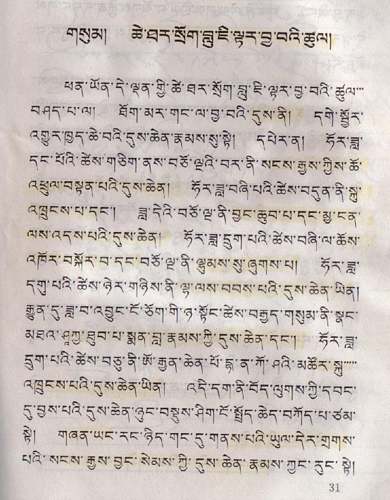 གསུམ། ཚེ་ཐར་སྲོག་བླུ་ཇི་ལྟར་བྱ་བའི་ཚུལ།
ཕན་ཡོན་དེ་ལྡན་གྱི་ཚེ་ཐར་སྲོག་བླུ་ཇི་ལྟར་བྱ་བའི་ཚུལ་
བཤད་པ་ལ། ཐོག་མར་གང་ལ་བྱ་བའི་དུས་ནི། དགེ་སྦྱོར་
འགྱུར་ཁྱད་ཆེ་བའི་དུས་ཆེན་རྣམས་སུ་སྟེ། དཔེར་ན། ཧོར་ཟླ་
དང་པོའི་ཚེས་གཅིག་ནས་བཅོ་ལྔའི་བར་ནི་སངས་རྒྱས་ཀྱིས་ཆོ་
འཕྲུལ་བསྟན་པའི་དུས་ཆེན། ཧོར་ཟླ་བཞི་པའི་ཚེས་བདུན་ནི་སྐུ་
འཁྲུངས་པ་དང་། ཟླ་དེའི་བཅོ་ལྔ་ནི་བྱང་ཆུབ་པ་དང་མྱ་ངན་
ལས་འདས་པའི་དུས་ཆེན། ཧོར་ཟླ་དྲུག་པའི་ཚེས་བཞི་ལ་ཆོས་
འཁོར་བསྐོར་བ་དང་བཅོ་ལྔ་ནི་ལྷུམས་སུ་ཞུགས་པ། ཧོར་ཟླ་
དགུ་པའི་ཚེས་ཉེར་གཉིས་ནི་ལྷ་ལས་བབས་པའི་དུས་ཆེན་ཡིན།
རྒྱུན་དུ་ཟླ་བ་འབྱུང་ངོ་ཅོག་གི་ཉ་སྟོང་ཚེས་བརྒྱད་གསུམ་ནི་སྣང་
མཐའ་ཤཱཀྱ་ཐུབ་པ་སྨན་བླ་རྣམས་ཀྱི་དུས་ཆེན་དང་། ཧོར་ཟླ་
དྲུག་པའི་ཚེས་བཅུ་ནི་ཨོ་རྒྱན་ཆེན་པོ་དྷ་ན་ཀོ་ཤའི་མཚོར་སྐུ་
འཁྲུངས་པའི་དུས་ཆེན་ཡིན། འདི་དག་ནི་བོད་ལུགས་ཀྱི་དབང་
དུ་བྱས་པའི་དུས་ཆེན་ཉུང་བསྡུས་ཤིག་ངོ་སྤྲོད་ཆེད་བཀོད་པ་ཙམ་
སྟེ། གཞན་ཡང་རང་ཉིད་གང་དུ་གནས་པའི་ཡུལ་དེར་གྲགས་
པའི་སངས་རྒྱས་བྱང་སེམས་ཀྱི་དུས་ཆེན་རྣམས་ཀྱང་རུང་སྟེ།
31